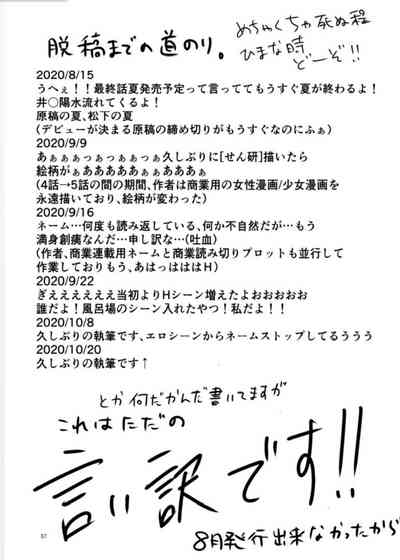 脱稿までの道のり。
めちゃくちゃ死ぬ程
ひまな時
どーぞ!!
2020/8/15
うへぇ！！最終話夏発売予定って言っててもうすぐ夏が終わるよ！
井○陽水流れてくるよ！
原稿の夏、松下の夏
(デビューが決まる原稿の締め切りがもうすぐなのにふぁ)
2020/9/9
あぁぁぁっぁっぁぁっぁ久しぶりに[せん研]描いたら
絵柄がぁああああああぁぁああああぁ
(4話→5話の間の期間、作者は商業用の女性漫画/少女漫画を
永遠描いており、絵柄が変わった)
2020/9/16
ネーム…何度も読み返している、何か不自然だが…もう
満身創痍なんだ…申し訳な…(吐血)
(作者、商業連載用ネームと商業読み切りプロットも並行して
作業しておりもう、あはっはははH)
2020/9/22
ぎええええええ当初よりHシーン増えたよおおおおお
誰だよ！風呂場のシーン入れたやつ！私だよ！！
2020/10/8
久しぶりの執筆です、エロシーンからネームストップしてるううう
2020/10/20
久しぶりの執筆です↑
とか何だかんだ書いてますが
これはただの
言い訳です!!
8月発行出来なかったから
57